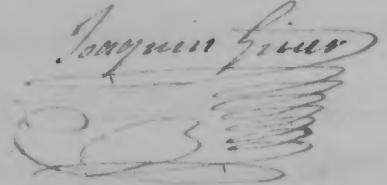 Joaquin Giner